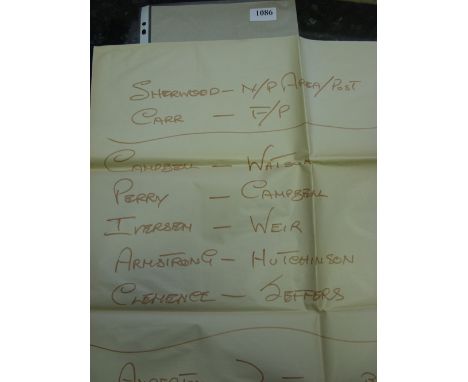 1086
SHERWOOD – N/P AREA/POST
CARR – F/P
CAMPBELL –
PERRY – CAMPBELL
IVERSEN – WEIR
ARMSTRONG – HUTCHINSON
CLEMENCE – JEFFERS